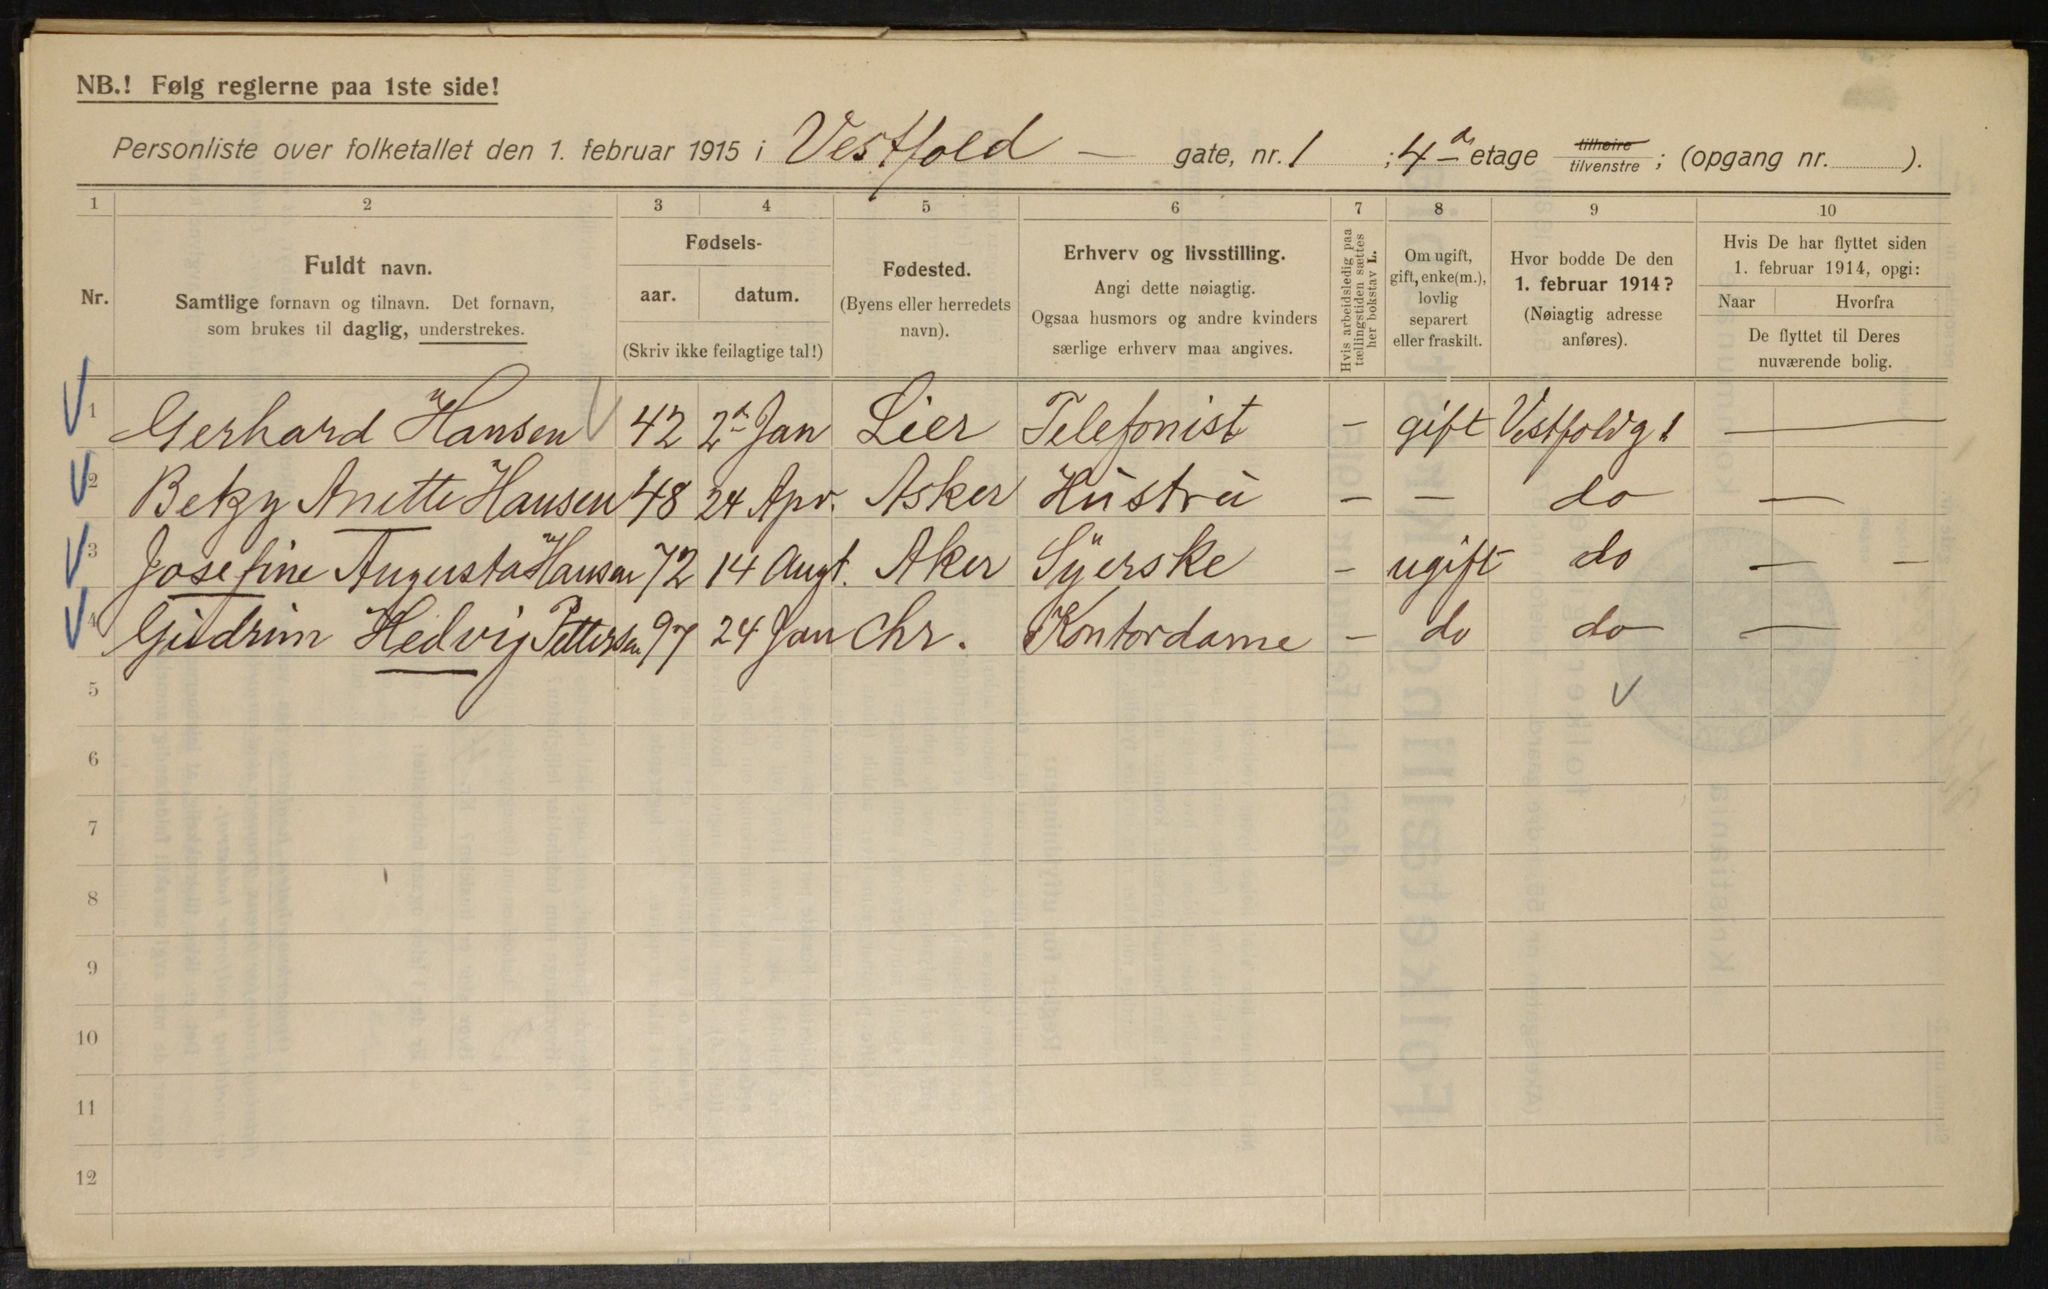 NB.! Følg reglerne paa 1ste side!
Personliste over folketallet den 1. februar 1915 i Vestfold — gate, nr. 1 ; 4de etage tilhøire tilvenstre ; (opgang nr. ).
1 2 3 4 5 6 7 8 9 10
Nr.
Fuldt navn.
Samtlige fornavn og tilnavn. Det fornavn,
som brukes til daglig, understrekes.
Fødsels-
aar. datum.
(Skriv ikke feilagtige tal!)
Fødested.
(Byens eller herredets
navn).
Erhverv og livsstilling.
Angi dette nøiagtig.
Ogsaa husmors og andre kvinders
særlige erhverv maa angives.
Hvis arbeidsledig paa
tællingstiden sættes
her bokstav L.
Om ugift,
gift, enke(m.),
lovlig
separert
eller fraskilt.
Hvor bodde De den
1. februar 1914?
(Nøiagtig adresse
anføres).
Hvis De har flyttet siden
1. februar 1914, opgi:
Naar Hvorfra
De flyttet til Deres
nuværende bolig.
1 Gerhard Hansen 42 2d Jan Lier Telefonist – gift Vestfoldg 1 —
2 Betzy Anette Hansen 48 24 Apr. Asker Hustru – – do —
3 Josefine Augusta Hansen 72 14 Augt. Aker Syerske – ugift do — –
4 Gudrun Hedvig Pettersen 97 24 Jan Chr. Kontordame – do do —
5
6
7
8
9
10
11
12